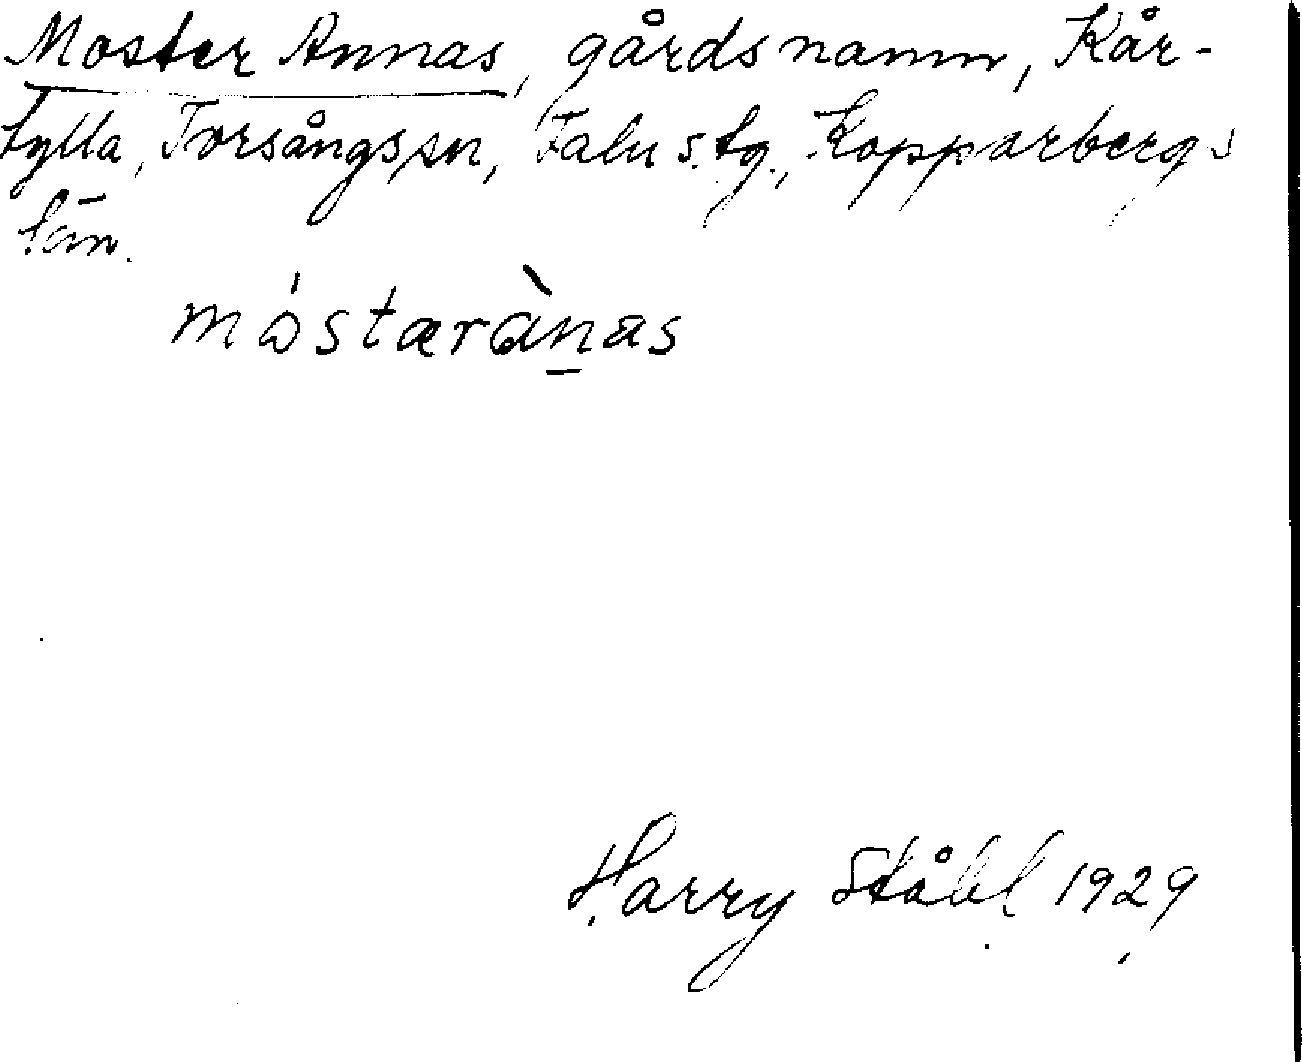 Moster Annas, gårdsnamn, Kår-
tylla, Torsångs sn, Falu s. tg., Kopparbergs
län.
móstæràn̲as
Harry Ståhl 1929